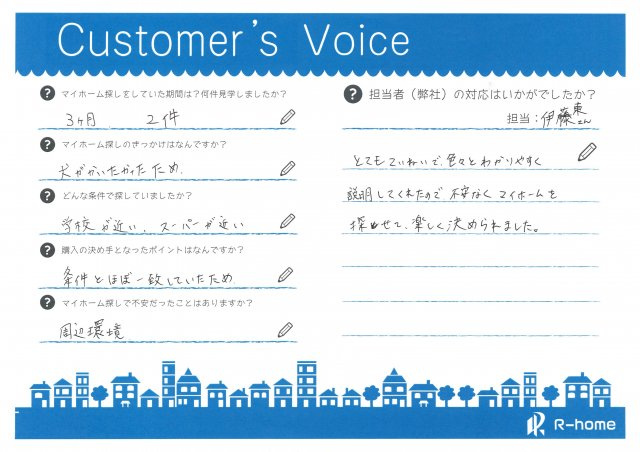 Customer's Voice
マイホーム探しをしていた期間は？何件見学しましたか？
3ヶ月 2件
マイホーム探しのきっかけはなんですか？
犬がかいたかったため
どんな条件で探していましたか？
学校が近い、スーパーが近い
購入の決め手となったポイントはなんですか？
条件とほぼ一致していたため
マイホーム探しで不安だったことはありますか？
周辺環境
担当者（弊社）の対応はいかがでしたか？
担当：伊藤東さん
とてもていねいで、色々とわかりやすく
説明してくれたので不安なくマイホームを
探せて、楽しく決められました。
R-home